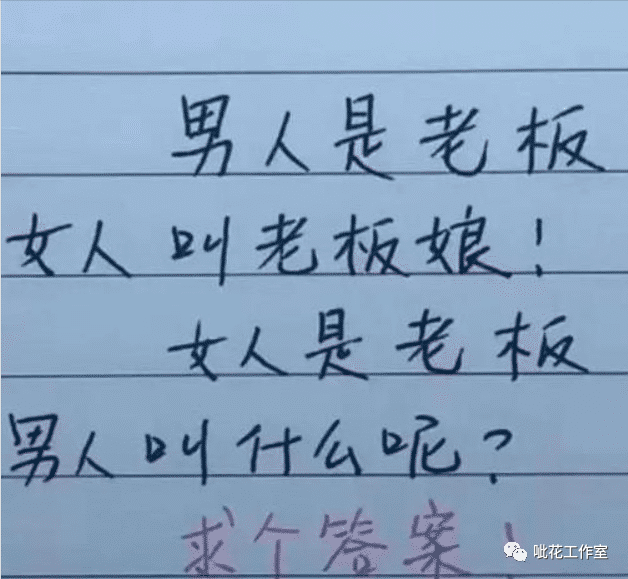 男人是老板
女人叫老板娘!
女人是老板
男人叫什么呢?
求个答案!
呲花工作室